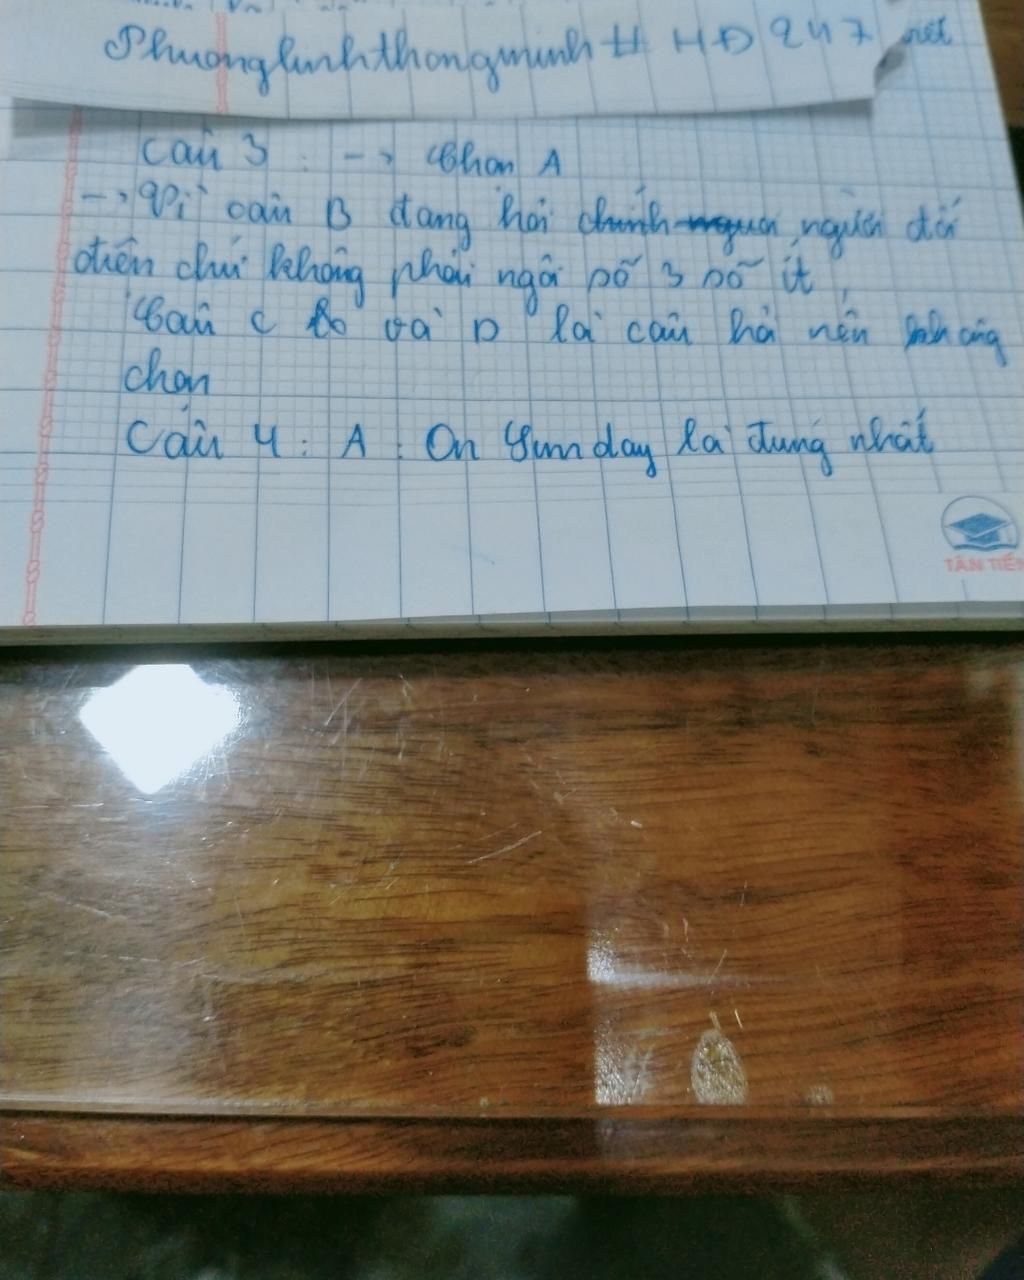 Phuonglinhthongminh # HĐ 247 net
Câu 3 : -> Chọn A
-> Vì câu B đang hỏi chính người đối
diện chứ không phải ngôi số 3 số ít,
Câu C và D là câu hỏi nên không
chọn
Câu 4 : A : On Sunday là đúng nhất
TÂN TIẾN